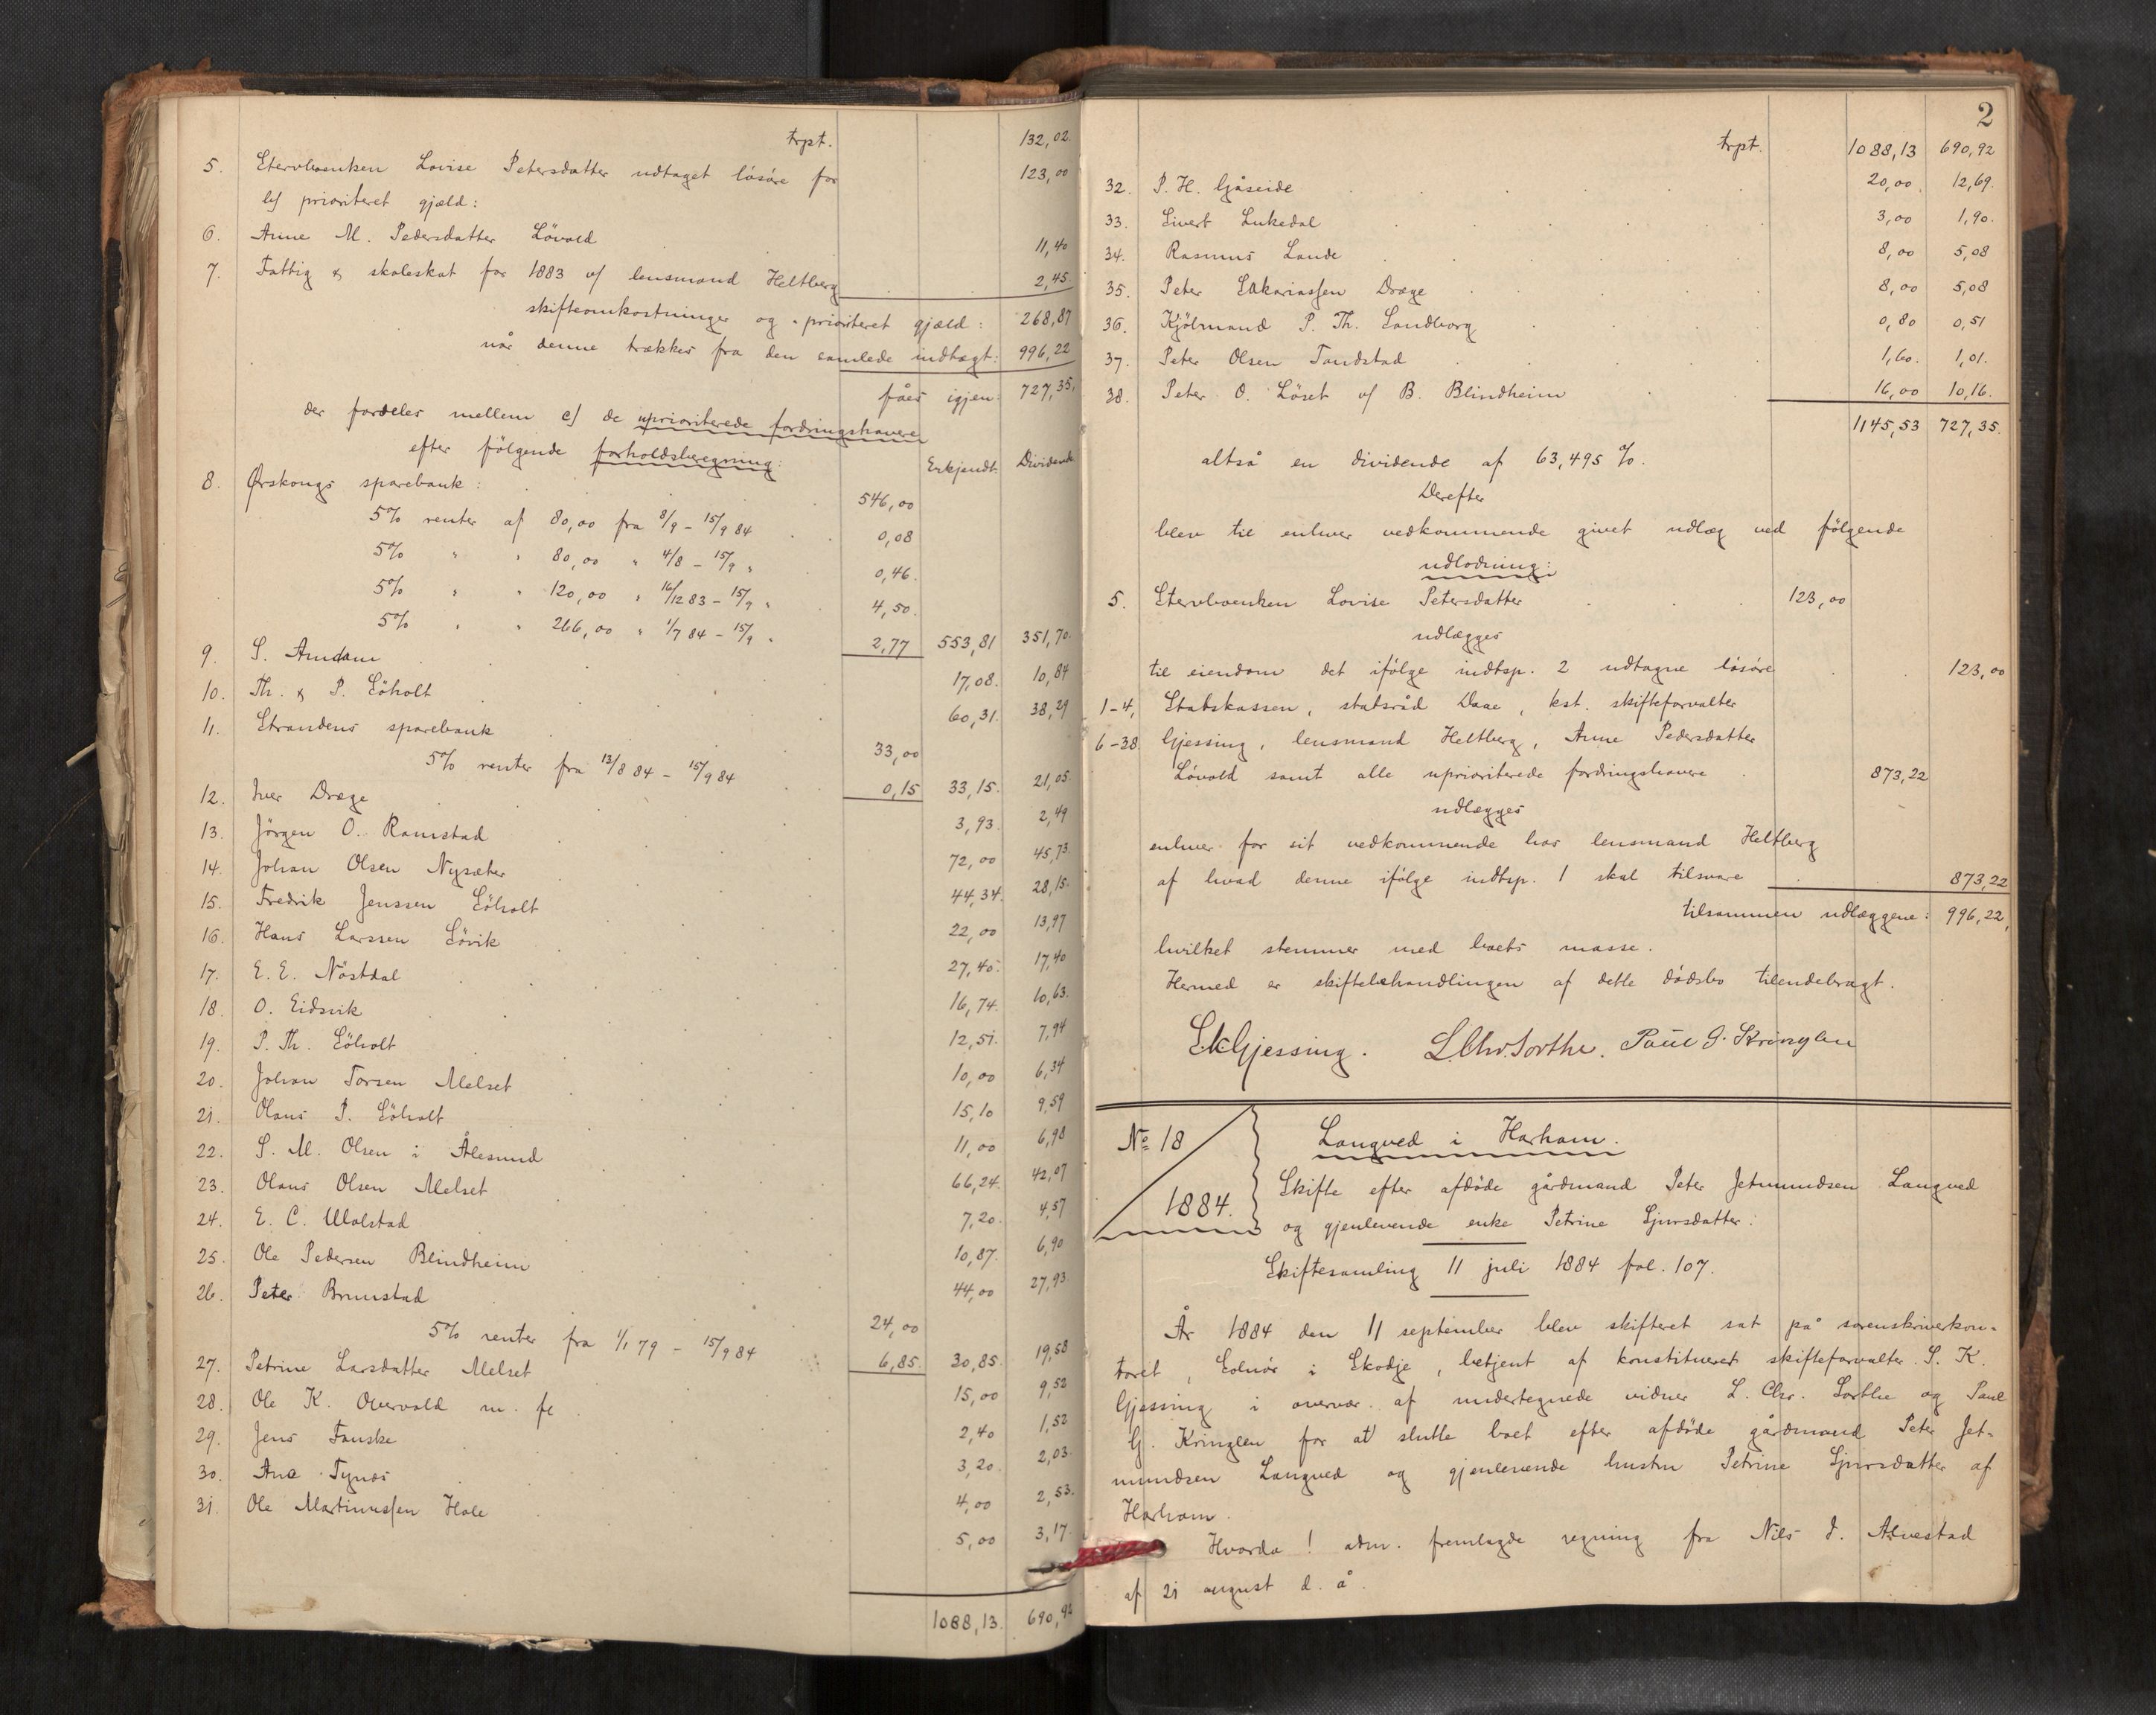 trpt. 132,02.
5. Stervboenken Lovise Petersdatter udtaget lösöre for 123,00
b) prioriteret gjæld:
6. Anne M. Pedersdatter Lövold 11,40
7. Fattig & skoleskat for 1883 v/ lensmand Heltberg 2,45.
skifteomkostninger og prioriteret gjæld: 268,87
når denne trækkes fra den samlede indtægt: 996,22
fåes igjen: 727,35.
der fordeles mellem c) de uprioriterede fordringshavere
efter fölgende forholdsberegning: Erkjendt. Dividende
8. Ørskougs sparebank: 546,00
5% renter af 80,00 fra 8/9 – 15/9 84 0,08
5% " " 80,00 " 4/8 – 15/9 " 0,46.
5% " " 120,00 " 16/12 83 – 15/9 " 4,50.
5% " " 266,00 " 1/7 84 – 15/9 " 2,77 553,81 351,70.
9. S. Amdam 17,08. 10,84
10. Th. & P. Söholt 60,31. 38,29
11. Strandens sparebank 33,00
5% renter fra 13/8 84 – 15/9 84 0,15 33,15. 21,05.
12. Iver Dræge 3,93. 2,49
13. Jörgen O. Ramstad 72,00 45,73.
14. Johan Olsen Nysæter 44,34. 28,15.
15. Fredrik Jenssen Söholt 22,00 13,97
16. Hans Larssen Sövik 27,40. 17,40
17. E. E. Nöstdal 16,74. 10,63.
18. O. Eidsvik 12,51. 7,94
19. P. Th. Söholt 10,00 6,34
20. Johan Torsen Melset 15,10 9,59
21. Olaus P. Söholt 11,00 6,98
22. S. M. Olsen i Ålesund 66,24. 42,07
23. Olaus Olsen Melset 7,20. 4,57
24. E. C. Walstad 10,87. 6,90
25. Ole Pedersen Blindheim 44,00 27,93.
26. Peter Brunstad 24,00
5% renter fra 1/1 79 – 15/9 84 6,85. 30,85. 19,58
27. Petrine Larsdatter Melset 15,00 9,52
28. Ole K. Overvold m. fl. 2,40 1,52
29. Jens Fauske 3,20. 2,03.
30. Ana Tynæs 4,00 2,53.
31. Ole Martinussen Hole 5,00 3,17.
1088,13. 690,92
2
trpt. 1088,13 690,92
32. P. H. Gåseide 20,00. 12,69.
33. Sivert Lukedal 3,00 1,90.
34. Rasmus Lande 8,00 5,08
35. Peter Sakariassen Dræge 8,00 5,08
36. Kjöbmand P. Th. Sandborg 0,80 0,51
37. Peter Olsen Tandstad 1,60. 1,01.
38. Peter O. Löset v/ B. Blindheim 16,00 10,16.
1145,53 727,35.
altså en dividende af 63,495 %.
Derefter
blev til enhver vedkommende givet udlæg ved fölgende
udlodning:
5. Stervboenken Lovise Petersdatter 123,00
udlægges
til eiendom det ifölge indtsp. 2 udtagne lösöre 123,00
1-4, Statskassen, statsråd Daae, kst. skifteforvalter
6-38 Gjessing, lensmand Heltberg, Anne Pedersdatter
Lövold samt alle uprioriterede fordringshavere 873,22
udlægges
enhver for sit vedkommende hos lensmand Heltberg
af hvad denne ifölge indtsp. 1 skal tilsvare 873,22
tilsammen udlæggene: 996,22,
hvilket stemmer med boets masse.
Hermed er skiftebehandlingen af dette dödsbo tilendebragt.
SKGjessing. L.Chr.Sorthe. Paul G. Kringlen
No 18 Langved i Harham.
1884. Skifte efter afdöde gårdmand Peter Jetmundsen Langved
og gjenlevende enke Petrine Sjursdatter:
Skiftesamling 11 juli 1884 fol. 107.
År 1884 den 11 september blev skifteret sat på sorenskriverkon-
toret, Solnör i Skodje, betjent af konstitueret skifteforvalter S. K.
Gjessing i overvær af undertegnede vidner L. Chr. Sorthe og Paul
G. Kringlen for at slutte boet efter afdöde gårdmand Peter Jet-
mundsen Langved og gjenlevende hustru Petrine Sjursdatter af
Harham.
Hvorda! adm. fremlagde regning fra Nils J. Alvestad
af 21 august d. å.